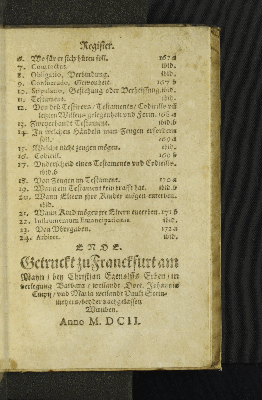 Register.
6. Wofür er sich hüten soll. 167 a
7. Contractus. ibid.
8. Obligatio, Verbindung. ibid.
9. Consuetudo, Gewonheit. 167 b
10. Stipulatio, Gestehung oder Verheissung. ibid.
11. Testament. ibid.
12. Von deß Testiters / Testaments / Codicills vñ
letzten Willens gelegenheit vnd Form. 168 a
13. Zweyerhandt Testament. ibid.
14. Zu welchen Händeln man Zeugen erfordern
soll. 169 a
15. Welche nicht zeugen mögen. ibid.
16. Codicill. 169 b
17. Vnderscheid eines Testaments vnd Codicills.
ibid. b
18. Von Zeugen im Testament. 170 a
19. Wann ein Testament kein krafft hat. ibid. b
20. Wann Eltern jhre Kinder mögen enterben.
ibid.
21. Wann Kind mögen jre Eltern enterben. 171 b
22. Instrumentum Emancipationis. ibid.
23. Von Vbergaben. 172 a
24. Arbiter. ibid.
ENDE.
Getruckt zu Franckfurt am
Mayn / bey Christian Egenolffs Erben / in
verlegung Barbara / weilandt Doct. Johannis
Cnipij / vnd Maria weilandt Pauli Stein-
meyers / beyder nachgelassen
Wittiben.
Anno M. DCII.